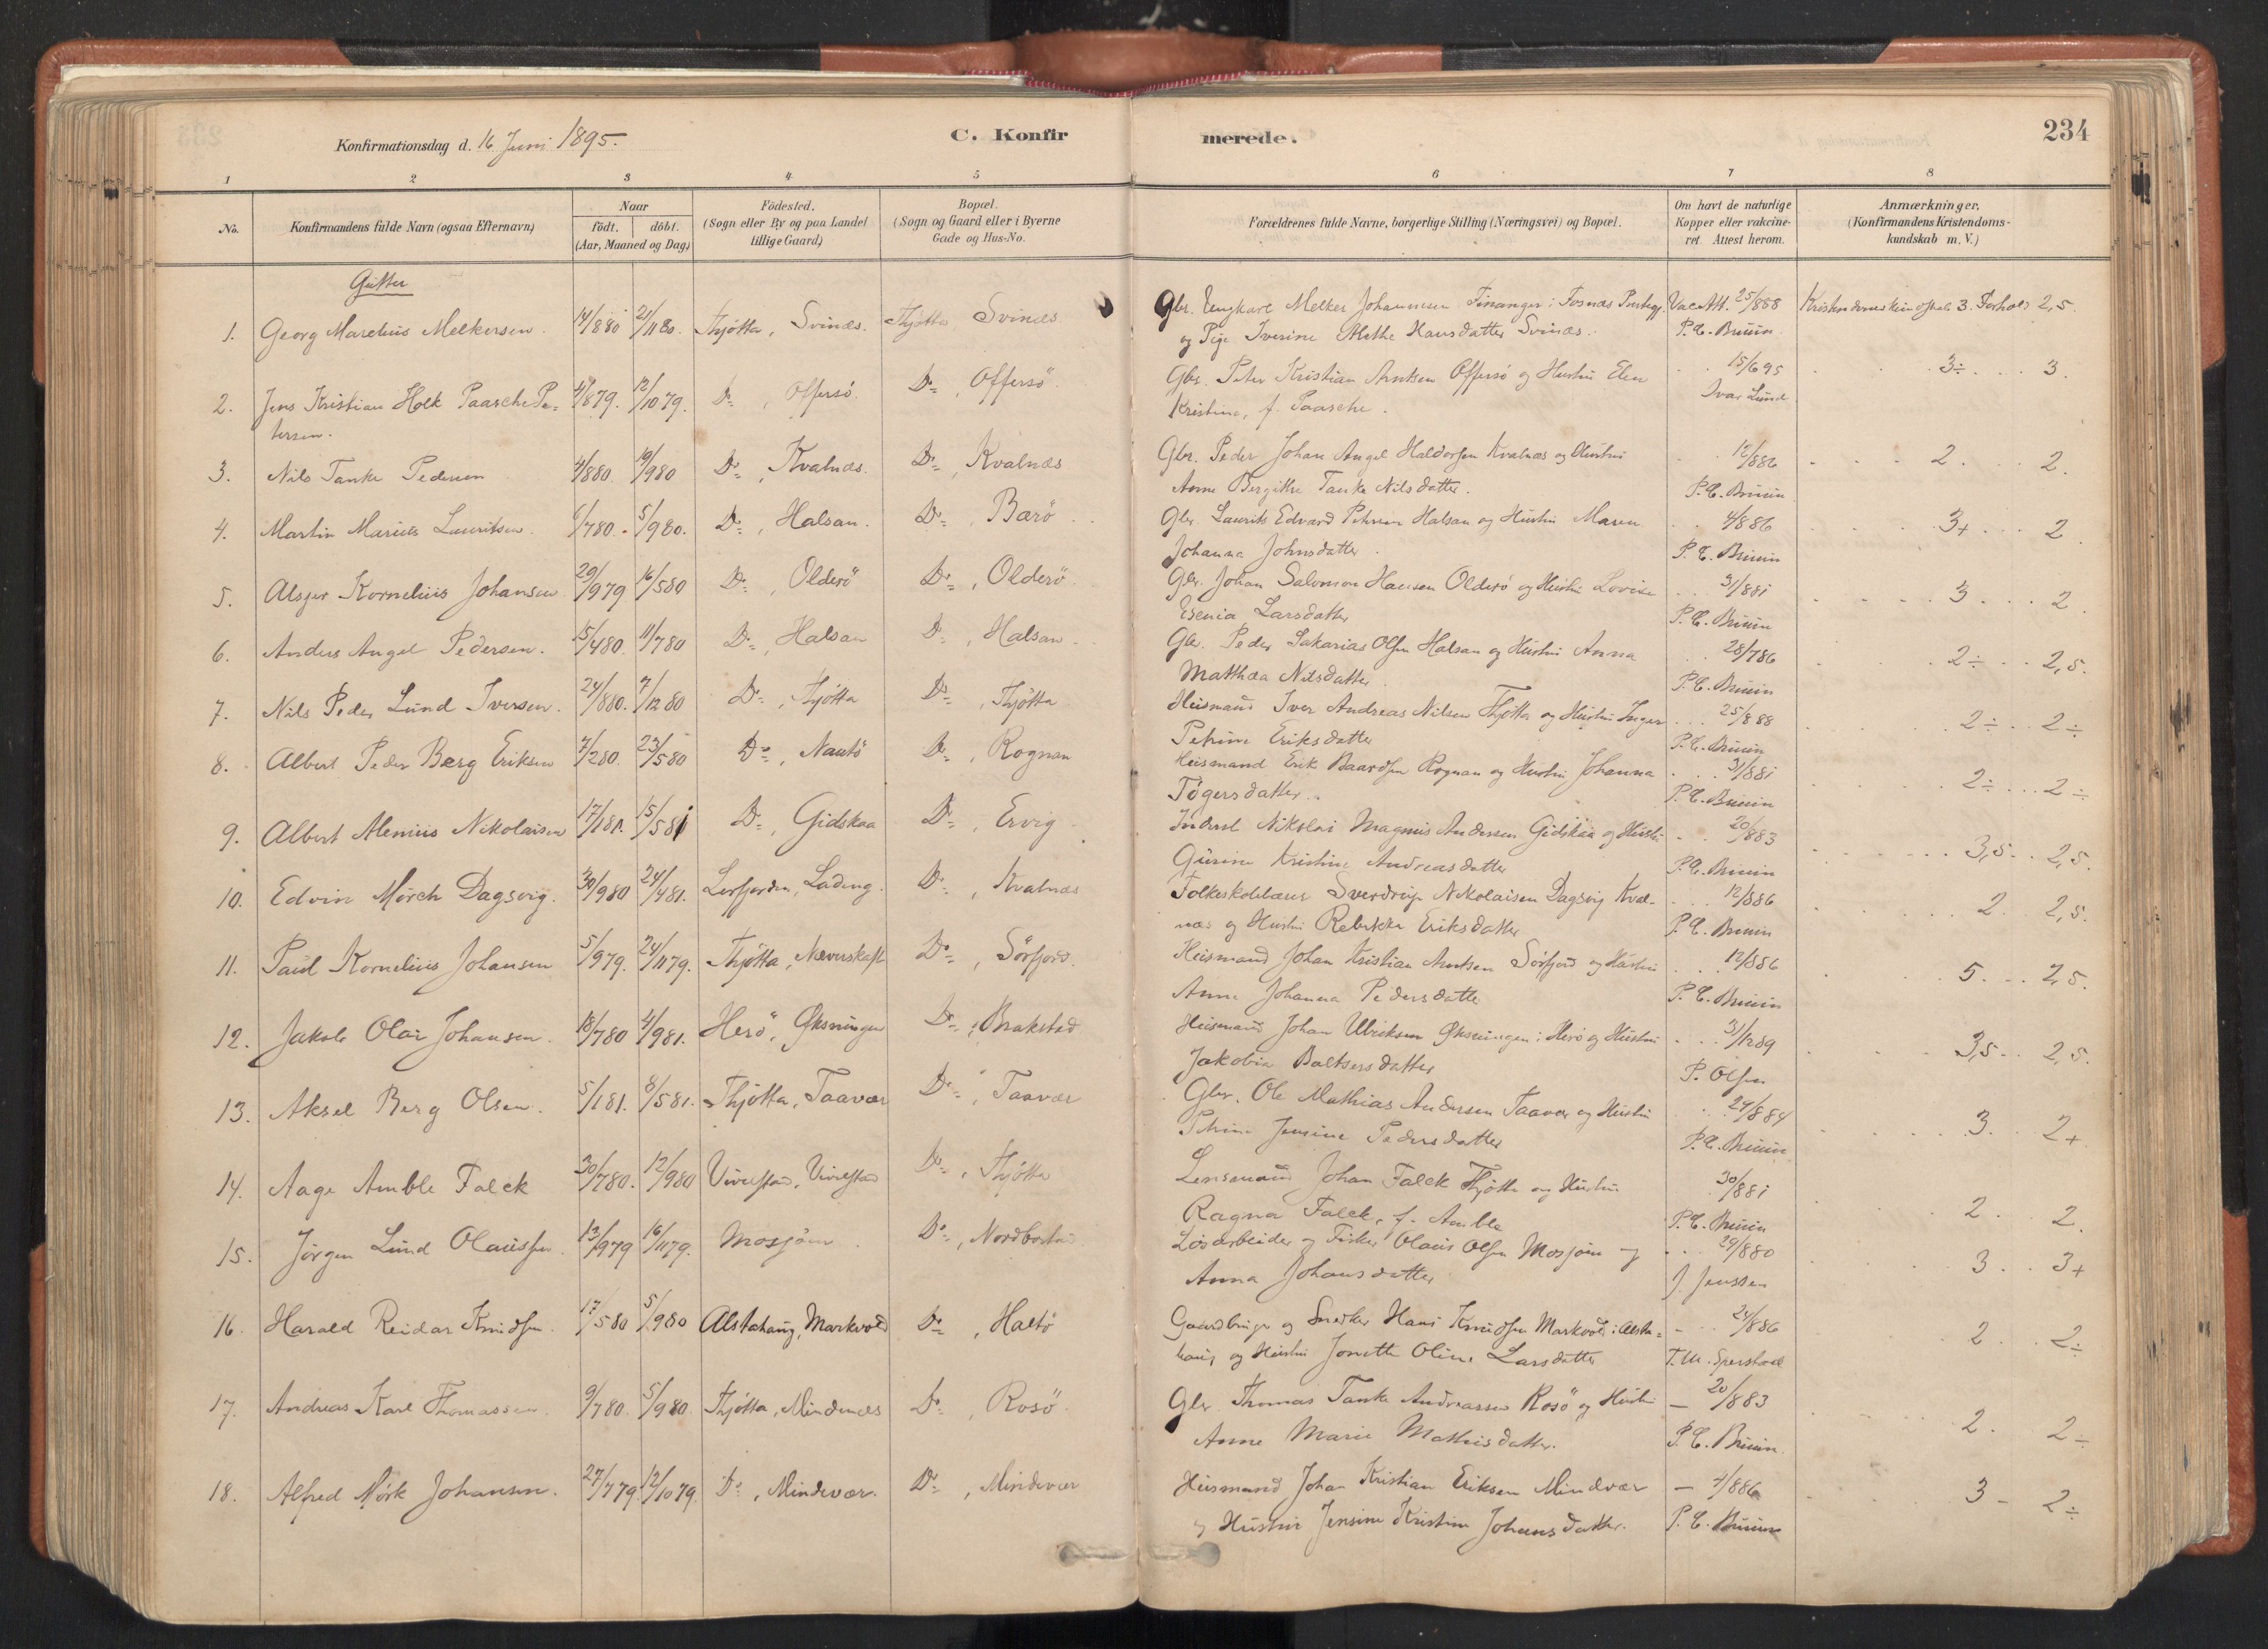 Konfirmationsdag d. 16 Juni 1895.
C. Konfirmerede.
234
1 2 3 4 5 6 7 8
No.
Konfirmandens fulde Navn (ogsaa Efternavn)
Naar
födt. döbt.
(Aar, Maaned og Dag)
Födested.
(Sogn eller By og paa Landet
tillige Gaard)
Bopæl.
(Sogn og Gaard eller i Byerne
Gade og Hus-No.
Forældrenes fulde Navne, borgerlige Stilling (Næringsvei) og Bopæl.
Om havt de naturlige
Kopper eller vakcine-
ret. Attest herom.
Anmærkninger.
(Konfirmandens Kristendoms-
kundskab m. V.)
Gutter
1. Georg Marelius Melkersen. 14/880 21/1180. Thjötta, Svinæs. Thjötta, Svinæs
Gbr. Ungkarl Melker Johannesen Finanger i Fosnæs Prestegj. Vac. Att. 25/888 Kristendomskundskab 3. Forhold 2,5.
og Pige Iverine Alethe Hansdatter Svinæs. P. C. Bruun.
2. Jens Kristian Holk Paasche Pe- 4/879. 12/1079. Do, Offersö. Do, Offersö.
tersen.
Gbr. Peter Kristian Arntsen Offersö og Hustru Elen 15/695 3÷ 3.
Kristine, f. Paasche. Ivar Lund
3. Nils Tanke Pedersen 4/880. 19/980 Do, Kvalnæs. Do, Kvalnæs
Gbr. Peder Johan Angel Haldorsen Kvalnæs og Hustru 12/886 2. 2.
Anne Bergitte Tanke Nilsdatter. P. C. Bruun.
4. Martin Marius Lauritsen. 6/780. 5/980. Do, Halsan. Do, Barö
Gbr. Laurits Edvard Petersen Halsan og Hustru Maren 4/886 3+ 2.
Johanna Johnsdatter. P. C. Bruun
5. Alsger Kornelius Johansen 29/979 16/580 Do, Olderö Do, Olderö.
Gbr. Johan Salomon Hansen Olderö og Hustru Lovise 31/881 3 2.
Esenia Larsdatter P. C. Bruun
6. Anders Angel Pedersen. 15/480. 11/780 Do, Halsan Do, Halsan
Gbr. Peder Sakarias Olsen Halsan og Hustru Anna 28/786 2÷ 2,5.
Matthea Nilsdatter P. C. Bruun
7. Nils Peder Lund Iversen. 24/880. 7/1280 Do, Thjötta Do, Thjötta
Husmand Iver Andreas Nilsen Thjötta og Hustru Inger 25/888 2÷ 2÷
Petrine Eriksdatter P. C. Bruun
8. Albert Peder Berg Eriksen 7/280. 23/580 Do, Nautö Do, Rognan
Husmand Erik Baardsen Rognan og Hustru Johanna 31/881 2÷ 2÷
Tögersdatter. P. C. Bruun
9. Albert Alenius Nikolaisen 17/181. 15/581 Do, Gidskaa Do, Ervig
Inderst Nikolai Magnus Andersen Gidskaa og Hustru 20/883 3,5 2,5.
Gurine Kristine Andreasdatter P. C. Bruun
10. Edvin Mörch Dagsvig. 30/980 24/481. Leirfjorden, Lading. Do, Kvalnæs
Folkeskolelærer Sverdrup Nikolaisen Dagsvig Kval- 12/886 2. 2,5.
næs og Hustru Rebekka Eriksdatter P. C. Bruun
11. Paul Kornelius Johansen 5/979. 24/1179. Thjötta, Neverskaft Do, Sörfjord.
Husmand Johan Kristian Arntsen Sörfjord og Hustru 12/886 5 2,5.
Anne Johanna Pedersdatter P. C. Bruun
12. Jakob Olai Johansen. 18/780 4/981. Herö, Øksningen Do, Brakstad
Husmand Johan Ulriksen Øksningen i Herö og Hustru 31/1289 3,5 2,5.
Jakobia Baltsersdatter P. Olsen
13. Aksel Berg Olsen. 5/181. 8/581. Thjötta, Taavær Do, Taavær
Gbr. Ole Mathias Andersen Taavær og Hustru 29/884 3. 2+
Petrine Jensine Pedersdatter P. C. Bruun
14. Aage Amble Falck 30/780. 12/980 Vivelstad, Vivelstad Do, Thjötta
Lensmand Johan Falck Thjötta og Hustru 30/881 2. 2.
Ragna Falck, f. Amble P. C. Bruun
15. Jörgen Lund Olaussen. 13/979 16/1179. Mosjöen Do, Nordbostad
Lösarbeider og Fisker Olaus Olsen Mosjöen og 29/880 3 3+
Anna Johansdatter J. Jenssen
16. Harald Reidar Knudsen. 17/580 5/980 Alstahaug, Markvold Do, Haltö
Gaardbruger og Snedker Hans Knudsen Markvold i Alsta- 24/886 2 2÷
haug og Hustru Jonette Oline Larsdatter T. M. Sperstad
17. Andreas Karl Thomassen. 9/780. 5/980. Thjötta, Mindenæs Do, Rosö.
Gbr. Thomas Tanke Andreassen Rosö og Hustru 20/883 2. 2÷
Anne Marie Mathisdatter. P. C. Bruun.
18. Alfred Mörk Johansen. 27/779. 12/1079. Do, Mindevær. Do, Mindevær
Husmand Johan Kristian Eriksen Mindvær 4/886 3 - 2÷
og Hustru Jensine Kristine Johansdatter. P. C. Bruun